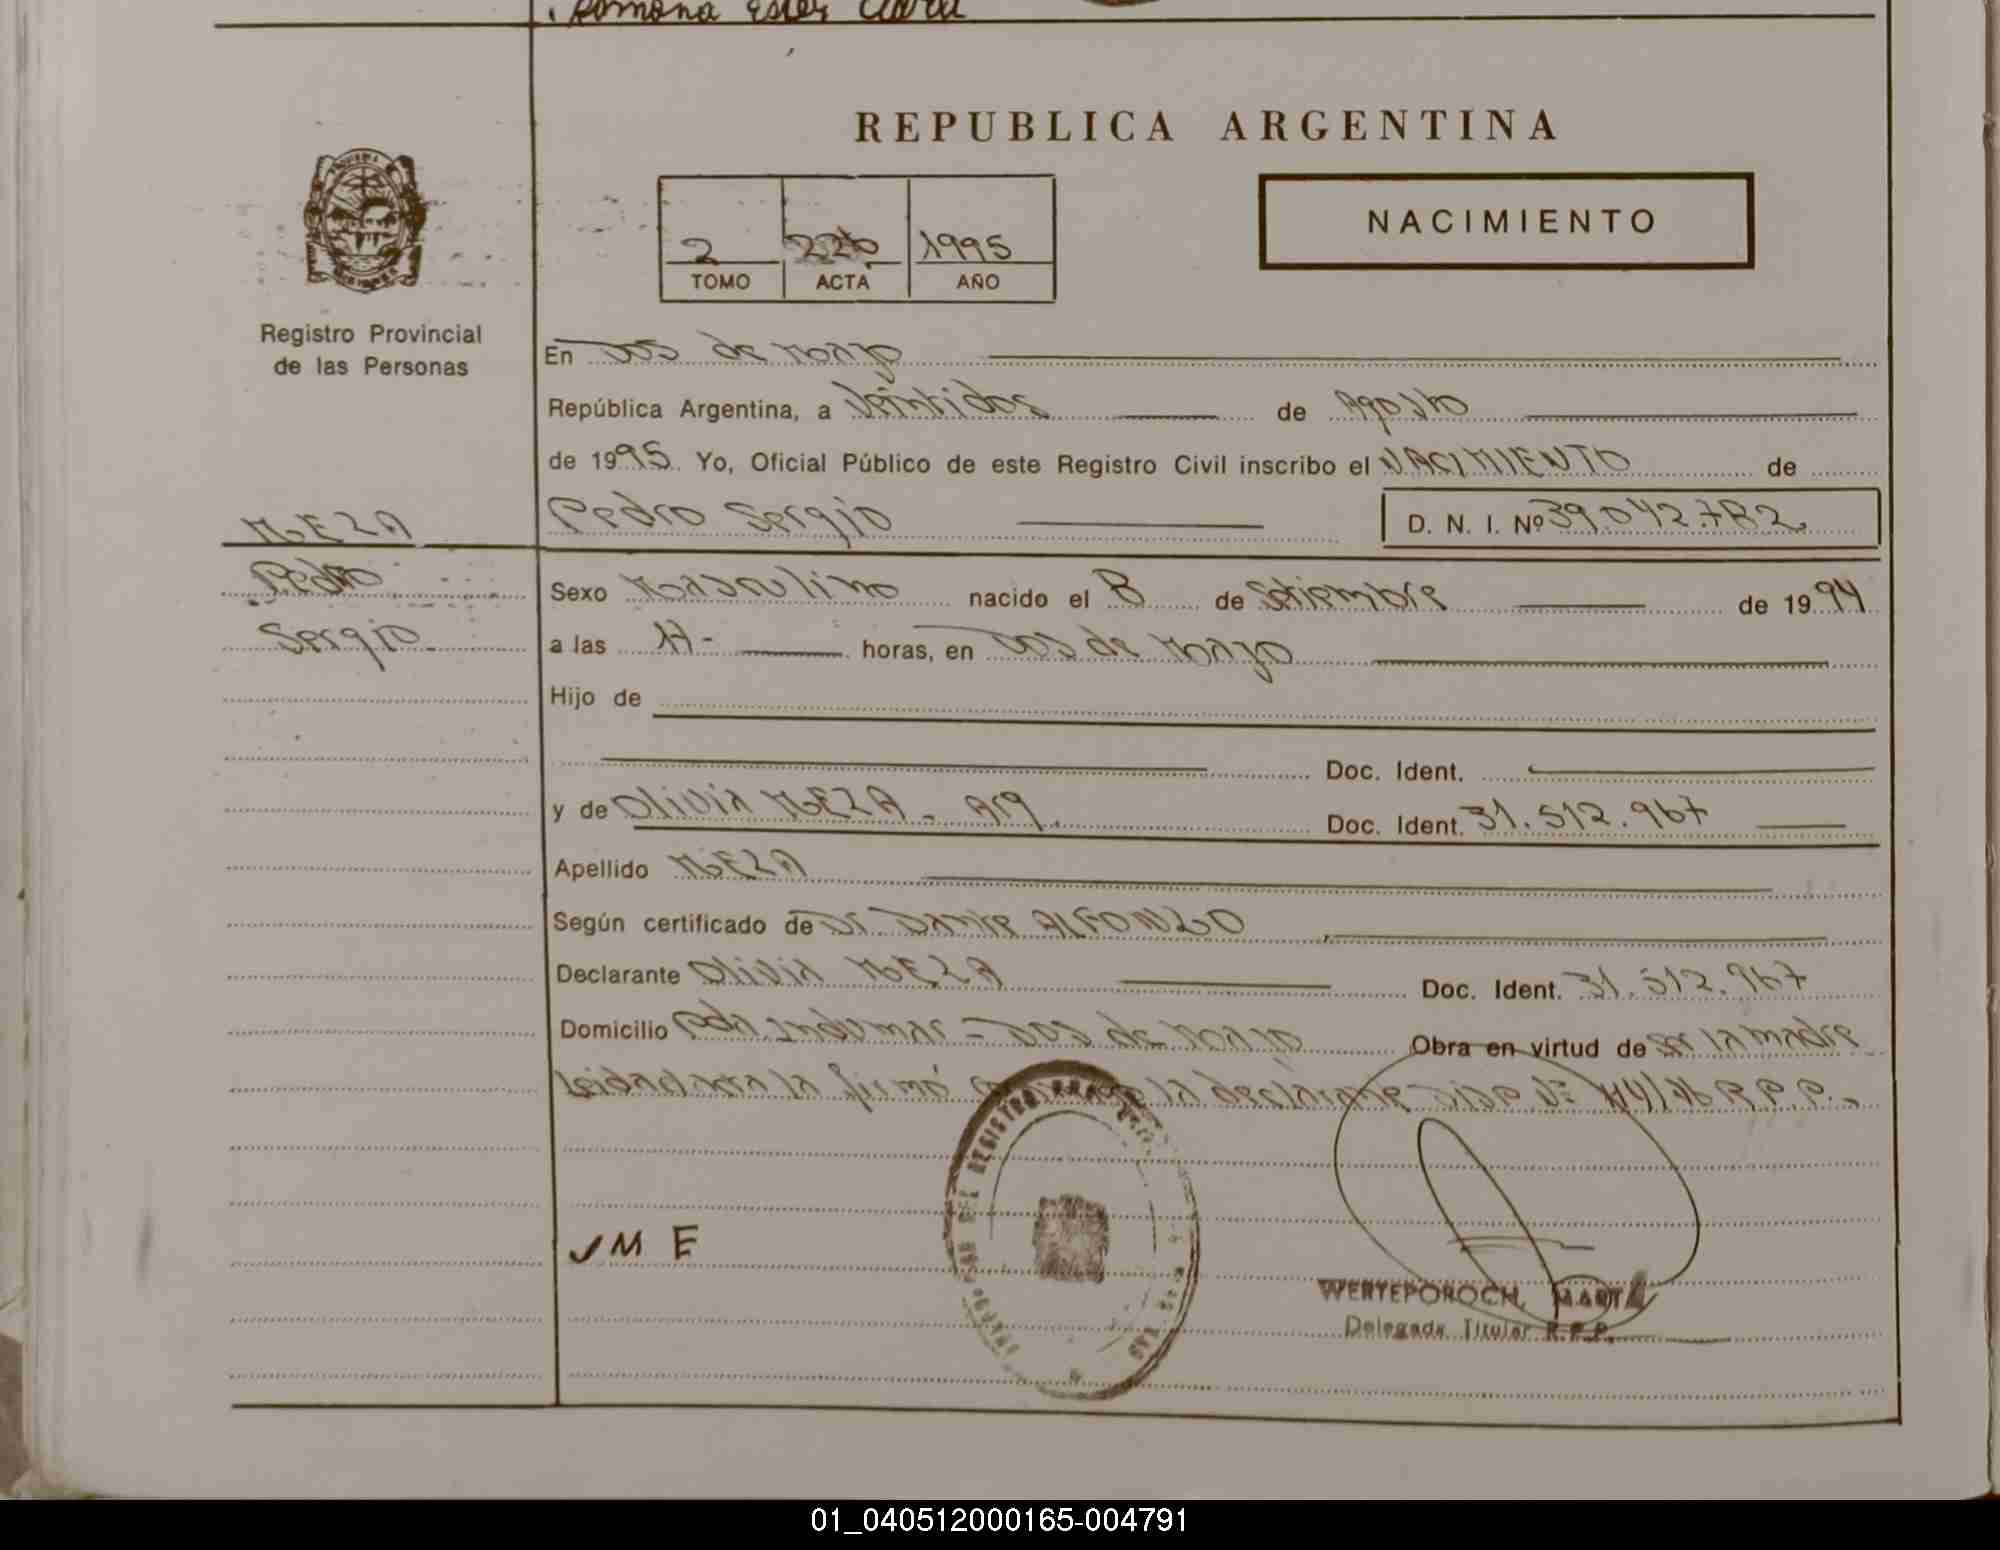 Ramona Ester
REPUBLICA ARGENTINA
NACIMIENTO
2 226 1995
TOMO ACTA AÑO
Registro Provincial
de las Personas
En Dos de Mayo
República Argentina, a Veintidos de Agosto
de 1995. Yo, Oficial Público de este Registro Civil inscribo el NACIMIENTO de
MEZA
Pedro Sergio D. N. I. Nº 39.042.782
Pedro
Sexo Masculino nacido el 8 de Setiembre de 1994
Sergio
a las 11- horas, en Dos de Mayo
Hijo de
Doc. Ident.
y de Olivia MEZA - Arg. Doc. Ident. 31.512.967
Apellido MEZA
Según certificado de Dr. Dante ALFONZO
Declarante Olivia MEZA Doc. Ident. 31.512.967
Domicilio Pda. Indumar - Dos de Mayo Obra en virtud de ser la madre
Leida el acta la firmó la declarante Disp. Nº R.P.P.-
REGISTRO
JME
WERYEPOROCH, MARTA
Delegada Titular R.P.P.
01_040512000165-004791